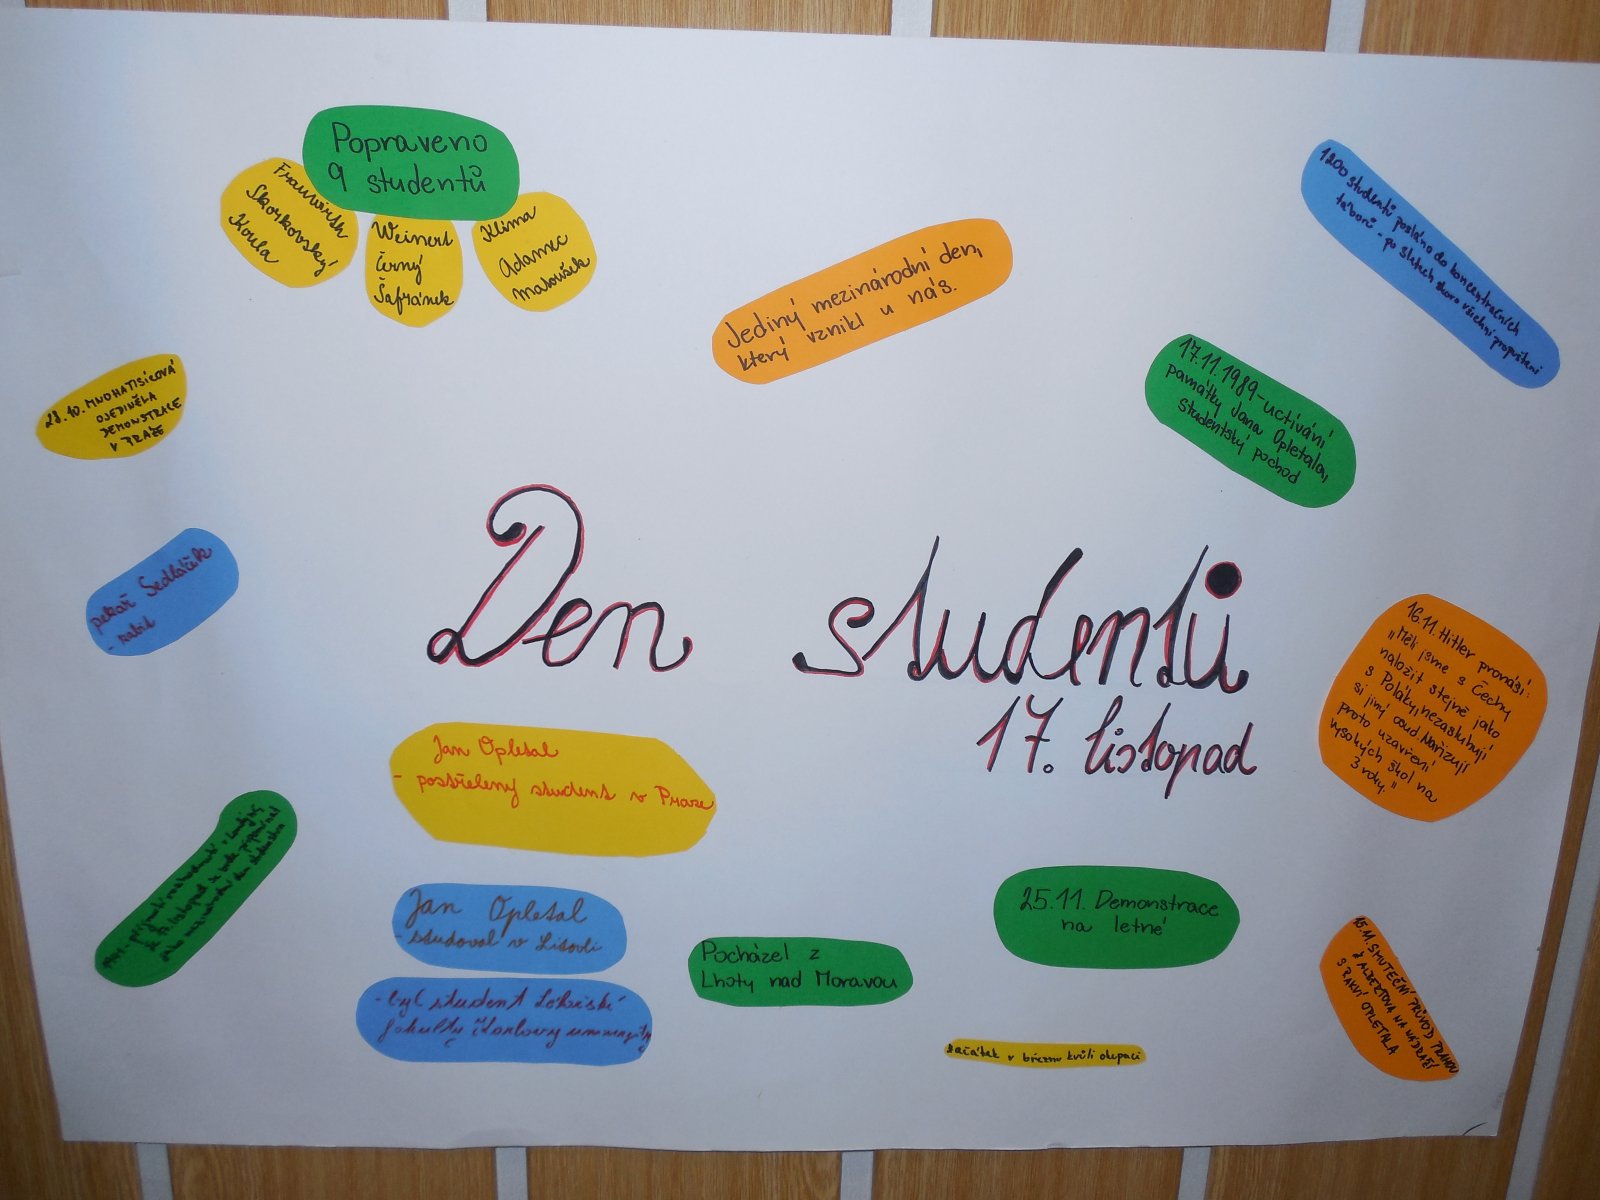 Popraveno
9 studentů
Frauwirth
Skorkovský
Koula
Weinert
Černý
Šafránek
Klima
Adamec
Matoušek
Jediný mezinárodní den,
který vznikl u nás.
1200 studentů posláno do koncentračních
táborů - po
skoro všichni propuštěni
17.11.1989-uctívání
památky Jana Opletala,
studentský pochod
28.10. MNOHATISÍCOVÁ
OJEDINĚLA
DEMONSTRACE
V PRAZE
pekař Sedláček
- zabit
Den studentů
17. listopad
16.11. Hitler pronáší:
"Měli jsme s Čechy
naložit stejně jako
s Poláky, nezasluhují
si jiný osud. Nařizuji
proto uzavření
vysokých škol na
3 roky."
Jan Opletal
- postřelený student v Praze
Jan Opletal
- studoval v Litovli
- byl student Lékařské
fakulty Karlovy univerzity
Pocházel z
Lhoty nad Moravou
25.11. Demonstrace
na letné
1941 přijmutí rozhodnutí v Londýně,
že 17. listopad se bude připomínat
jako mezinárodní den studentstva
začátek v březnu kvůli okupaci
15.11. SMUTEČNÍ PRŮVOD PRAHOU
Z ALBERTOVA NA NÁDRAŽÍ
S RAKVÍ OPLETALA